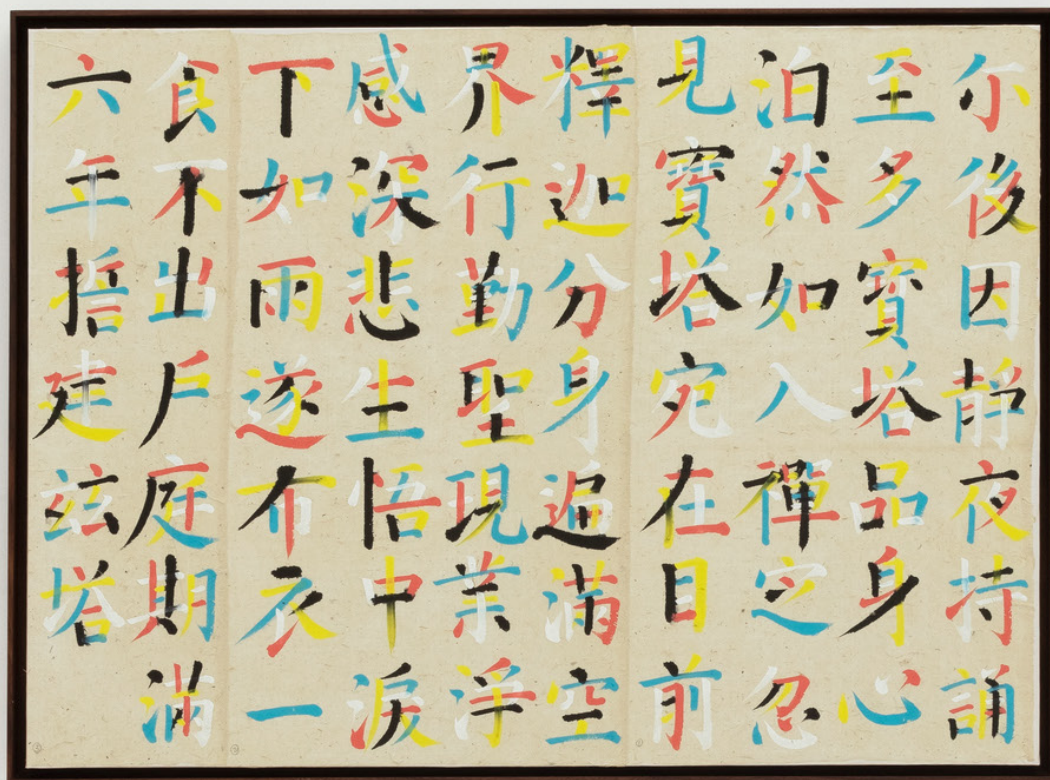 尒後因靜夜持誦
至多寶塔品身心
泊然如入禪定忽
見寶塔宛在目前
釋迦分身遍滿空
界行勤聖現業淨
感深悲生悟中淚
下如雨遂布衣一
食不出戶庭期滿
六年誓建茲塔